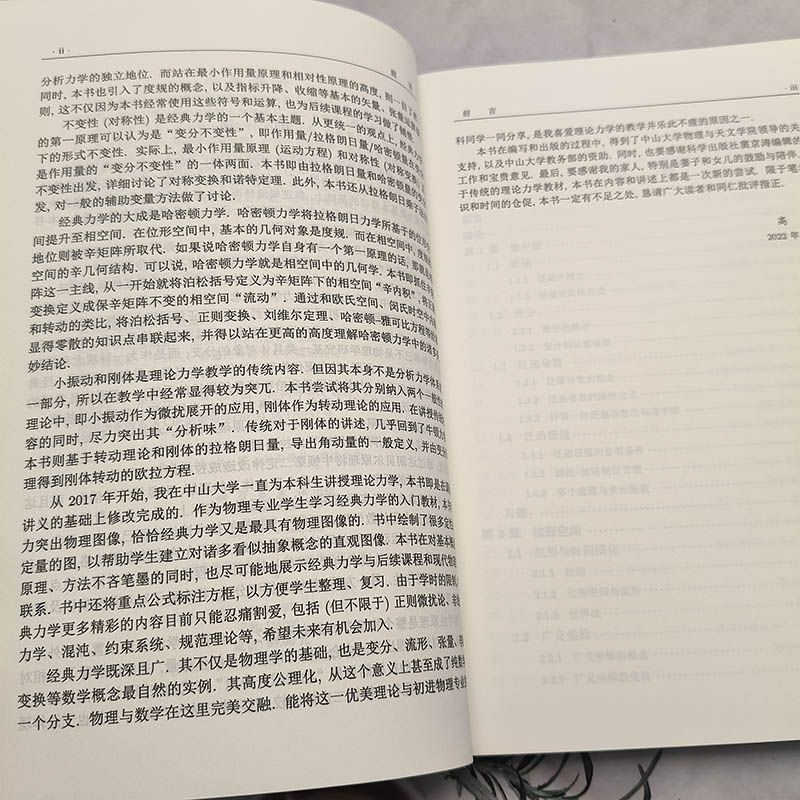 · ii ·
前
分析力学的独立地位. 而站在最小作用量原理和相对性原理的高度, 则一目了然
同时, 本书也引入了度规的概念, 以及指标升降、收缩等基本的矢量、张量
则, 这不仅因为本书经常使用这些符号和运算, 也为后续课程的学习做了铺垫
不变性 (对称性) 是经典力学的一个基本主题. 从更统一的观点上, 经典力学
的第一原理可以认为是“变分不变性”, 即作用量/拉格朗日量/哈密顿量在变分
下的形式不变性. 实际上, 最小作用量原理 (运动方程) 和对称性 (对称变换)
是作用量的“变分不变性”的一体两面. 本书即由拉格朗日量和哈密顿量的变分
不变性出发, 详细讨论了对称变换和诺特定理. 此外, 本书还从拉格朗日乘子
发, 对一般的辅助变量方法做了讨论.
经典力学的大成是哈密顿力学. 哈密顿力学将拉格朗日力学所基于的位形空
间提升至相空间. 在位形空间中, 基本的几何对象是度规. 而在相空间中, 度规的
地位则被辛矩阵所取代. 如果说哈密顿力学自身有一个第一原理的话, 那就是相
空间的辛几何结构. 可以说, 哈密顿力学就是相空间中的几何学. 本书即抓住辛矩
阵这一主线, 从一开始就将泊松括号定义为辛矩阵下的相空间“辛内积”, 将正则
变换定义成保辛矩阵不变的相空间“流动”. 通过和欧氏空间、闵氏时空中内积
和转动的类比, 将泊松括号、正则变换、刘维尔定理、哈密顿–雅可比方程等
显得零散的知识点串联起来, 并得以站在更高的高度理解哈密顿力学中的诸多
妙结论.
小振动和刚体是理论力学教学的传统内容. 但因其本身不是分析力学体系的
一部分, 所以在教学中经常显得较为突兀. 本书尝试将其分别纳入两个一般性的
理论中, 即小振动作为微扰展开的应用, 刚体作为转动理论的应用. 在讲授传统内
容的同时, 尽力突出其“分析味”. 传统对于刚体的讲述, 几乎回到了牛顿力学
本书则基于转动理论和刚体的拉格朗日量, 导出角动量的一般定义, 并由变分原
理得到刚体转动的欧拉方程.
从 2017 年开始, 我在中山大学一直为本科生讲授理论力学, 本书即是在
讲义的基础上修改完成的. 作为物理专业学生学习经典力学的入门教材, 本书
力突出物理图像, 恰恰经典力学又是最具有物理图像的. 书中绘制了很多定性
定量的图, 以帮助学生建立对诸多看似抽象概念的直观图像. 本书在对基本概念
原理、方法不吝笔墨的同时, 也尽可能地展示经典力学与后续课程和现代物理
联系. 书中还将重点公式标注方框, 以方便学生整理、复习. 由于学时的限制,
典力学更多精彩的内容目前只能忍痛割爱, 包括 (但不限于) 正则微扰论、非线性
力学、混沌、约束系统、规范理论等, 希望未来有机会加入.
经典力学既深且广. 其不仅是物理学的基础, 也是变分、流形、张量、
变换等数学概念最自然的实例. 其高度公理化, 从这个意义上甚至成了纯数学
一个分支. 物理与数学在这里完美交融. 能将这一优美理论与初进物理专业
前 言
· iii
科同学一同分享, 是我喜爱理论力学的教学并乐此不疲的原因之一.
本书在编写和出版的过程中, 得到了中山大学物理与天文学院领导的关
支持, 以及中山大学教务部的资助. 同时, 也要感谢科学出版社窦京涛编辑的
工作和宝贵意见. 最后, 要感谢我的家人, 特别是妻子和女儿的鼓励与陪伴.
于传统的理论力学教材, 本书在内容和讲述上都是一次新的尝试. 限于笔者
识和时间的仓促, 本书一定有不足之处, 恳请广大读者和同仁批评指正.
高
2022 年